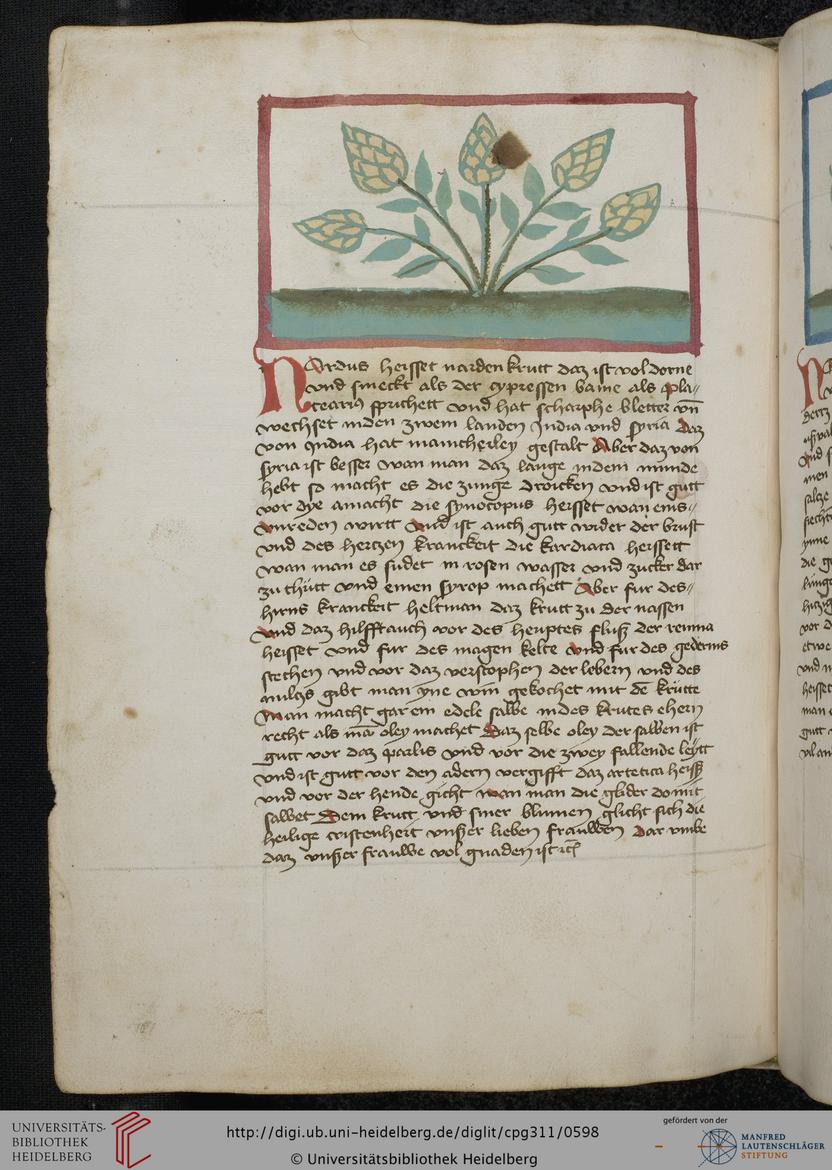 NArdus heisset narden krutt daz ist vol dorne
vnd smeckt als der cypressen bame als pla⸗
tearius sprichett vnd hat scharphe bletter vn̄
wechset inden zwein landen India vnd syria Daz
von India hat maincherley gestalt Aber daz von
syria ist besser wan man daz lange indem munde
hebt so macht es die zunge droicken vnd ist gutt
vor dye amacht die synocopus heisset wan eins⸗
vnreden wirtt Vnd ist auch gutt wider der brust
vnd des hertzen kranckeit die kardiaca heissett
wan man es sudet in rosen wasser vnd zucker dar
zu thutt vnd einen syrop machett Aber fur des⸗
hirns kranckeit heltman daz krutt zu der nassen
Vnd daz hilfft auch vor des heuptes fluß der reuma
heisset vnd fur des magen kelte Vnd fur des gederms
stechen vnd vor daz verstophen der lebern vnd des
milczs gibt man yne win gekochet mit dē krutte
Man macht gar ein edele salbe indes krutes ehern
recht als mā oley machet Daz selbe oley der salben ist
gutt vor daz parlis vnd vor die zwey fallende leytt
vnd ist gutt vor den adern vergifft daz artetica heiß
vnd vor der hende gicht wan man die glider do mit
salbet Dem krutt vnd siner blumen glicht sich die
heilige cristenheit vnßer lieben frauwen Dar vmbe
daz vnßer frauwe vol gnaden ist ꝛc̄
UNIVERSITÄTS-
BIBLIOTHEK
HEIDELBERG
http://digi.ub.uni-heidelberg.de/diglit/cpg311/0598
© Universitätsbibliothek Heidelberg
gefördert von der
MANFRED
LAUTENSCHLÄGER
STIFTUNG